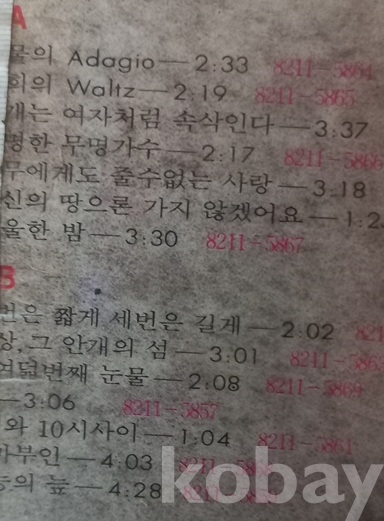 A
물의 Adagio—2:33 8211-5864
회의 Waltz—2:19 8211-5865
개는 여자처럼 속삭인다—3:37
명한 무명가수—2:17 8211-5866
무에게도 줄수없는 사랑—3:18
신의 땅으론 가지 않겠어요—1:2
울한 밤—3:30 8211-5867
B
번은 짧게 세번은 길게—2:02 821
상, 그 안개의 섬—3:01 8211-586
여덟번째 눈물—2:08 8211-5869
—3:06 8211-5857
와 10시사이—1:04 8211-5861
나부인—4:03 8211-586
능의 늪—4:28
kobay